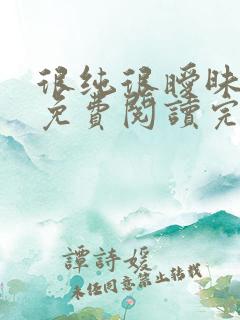 很純很曖昧
免費閱讀完
譚詩媛
未经同意禁止转载